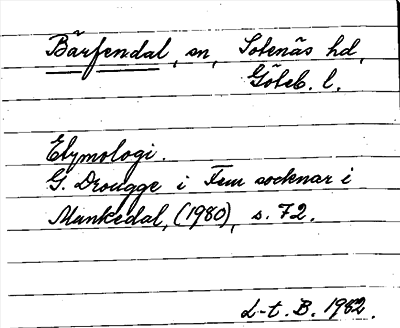 Bärfendal, sn, Sotenäs hd,
Göteb. l.
Etymologi.
G. Drougge i Fem socknar i
Munkedal, (1980), s. 72.
L-t. B. 1982.